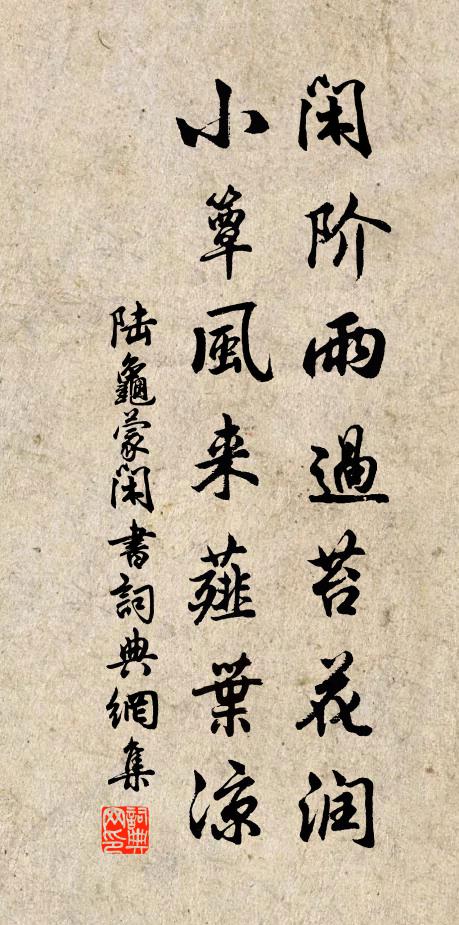 闲阶雨過苔花润
小簟風来薤葉凉
陆龜蒙闲書詞典網集
詞典网印